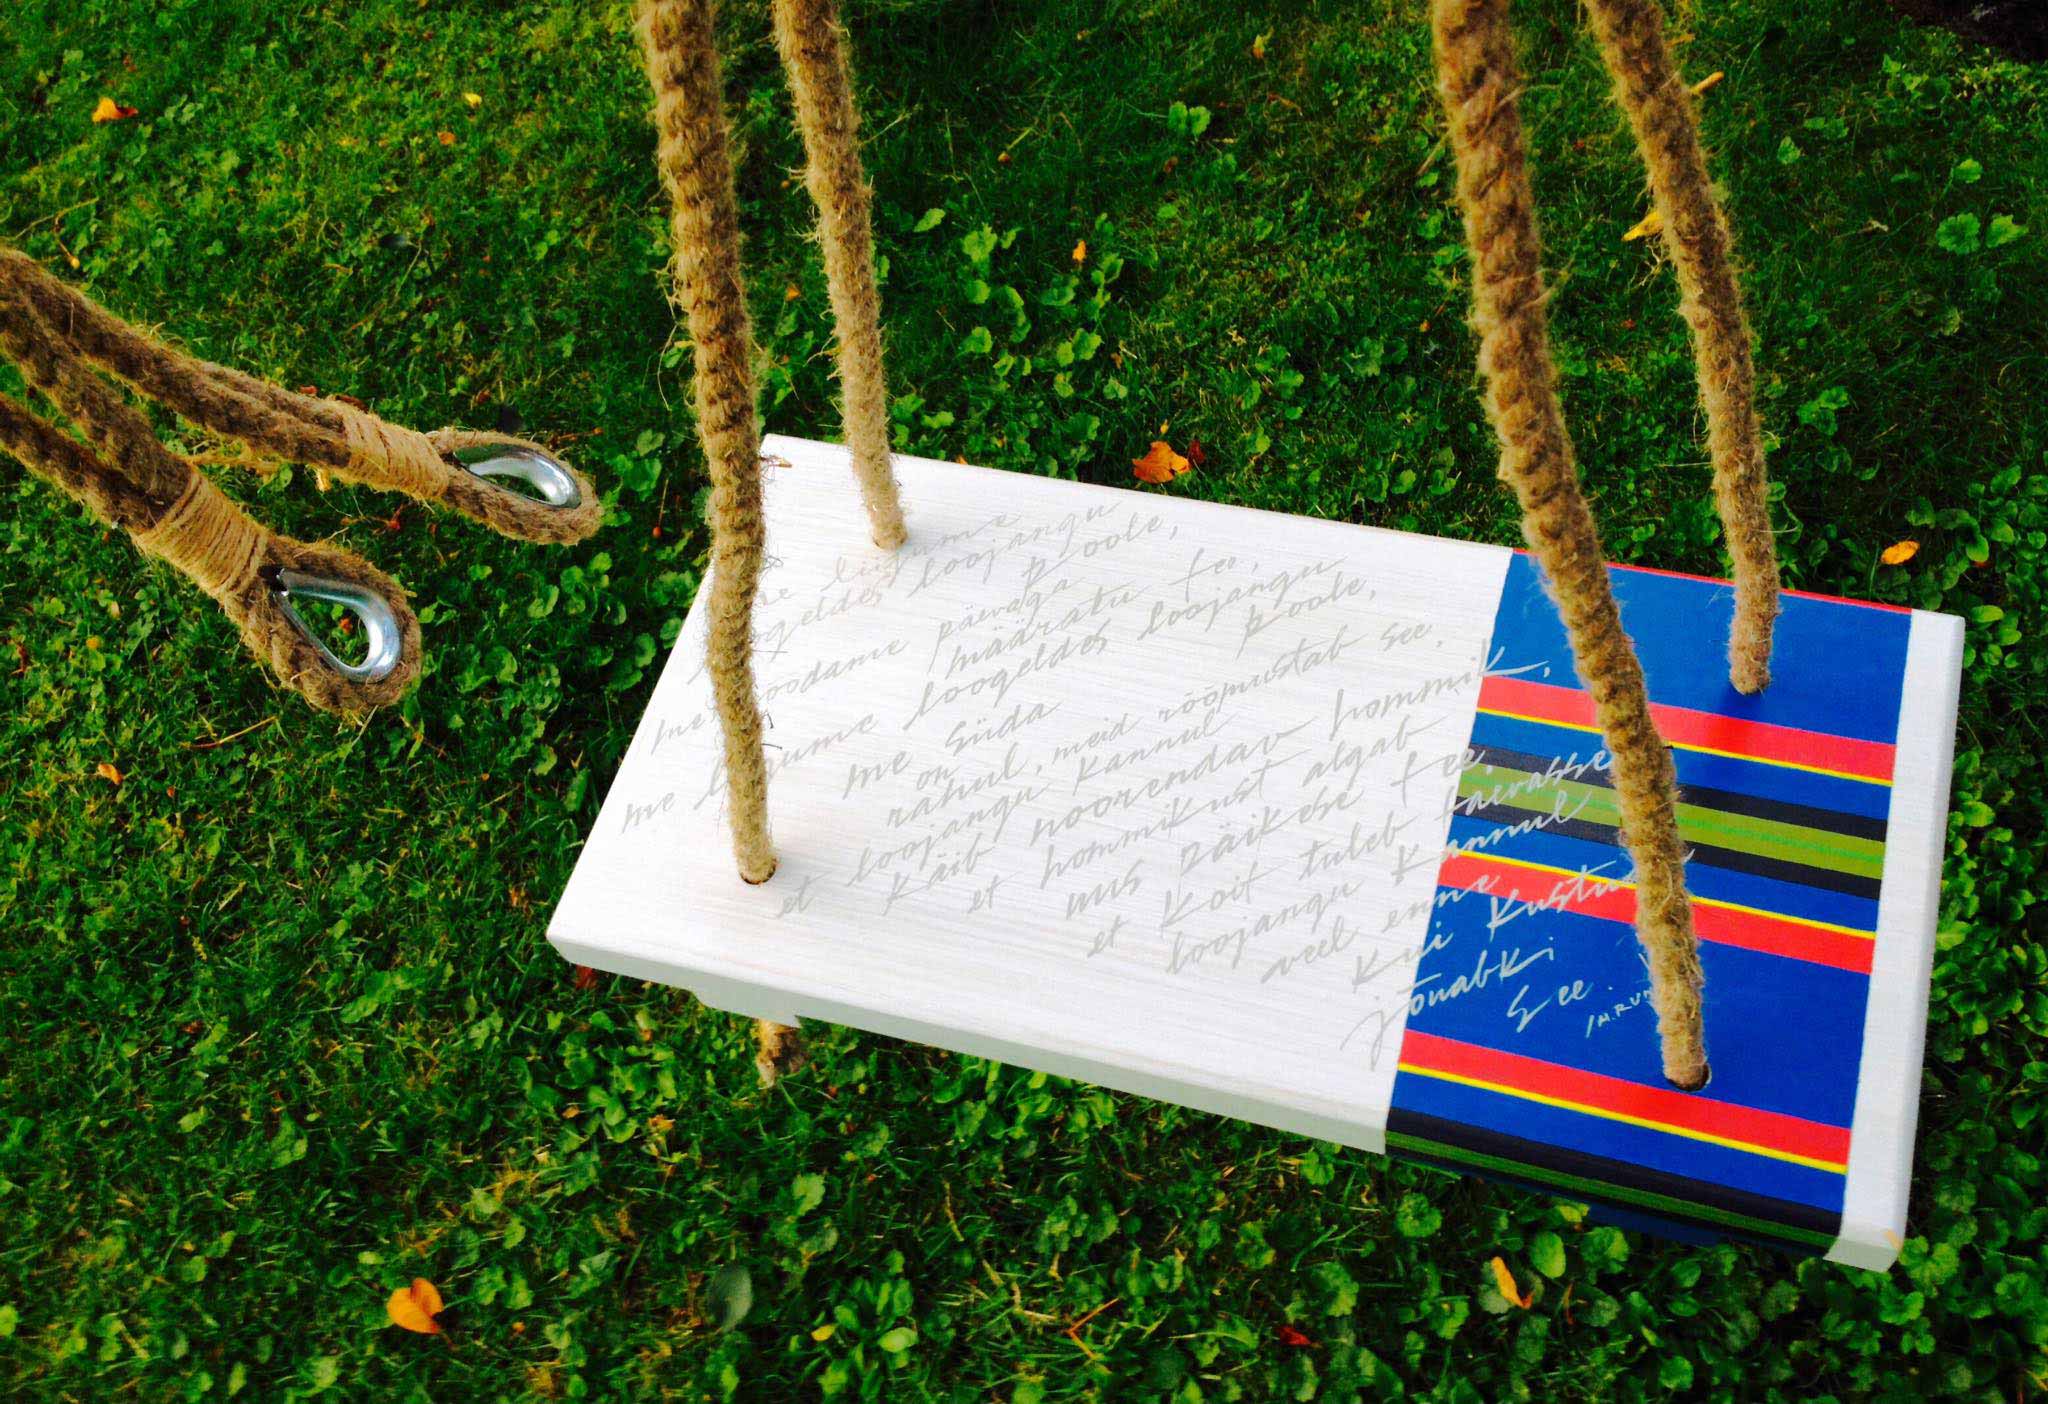 loojangu
poole,
me päevaga
määratu teo,
me loogeldes loojangu
poole,
me süda
on
rahul, meid rõõmustab see,
et loojangu kannul
käib noorendav hommik,
et hommikust algab
uus päikese tee.
et Koit tuleb taevasse
loojangu kannul
veel enne
kui
jõuabki
See.